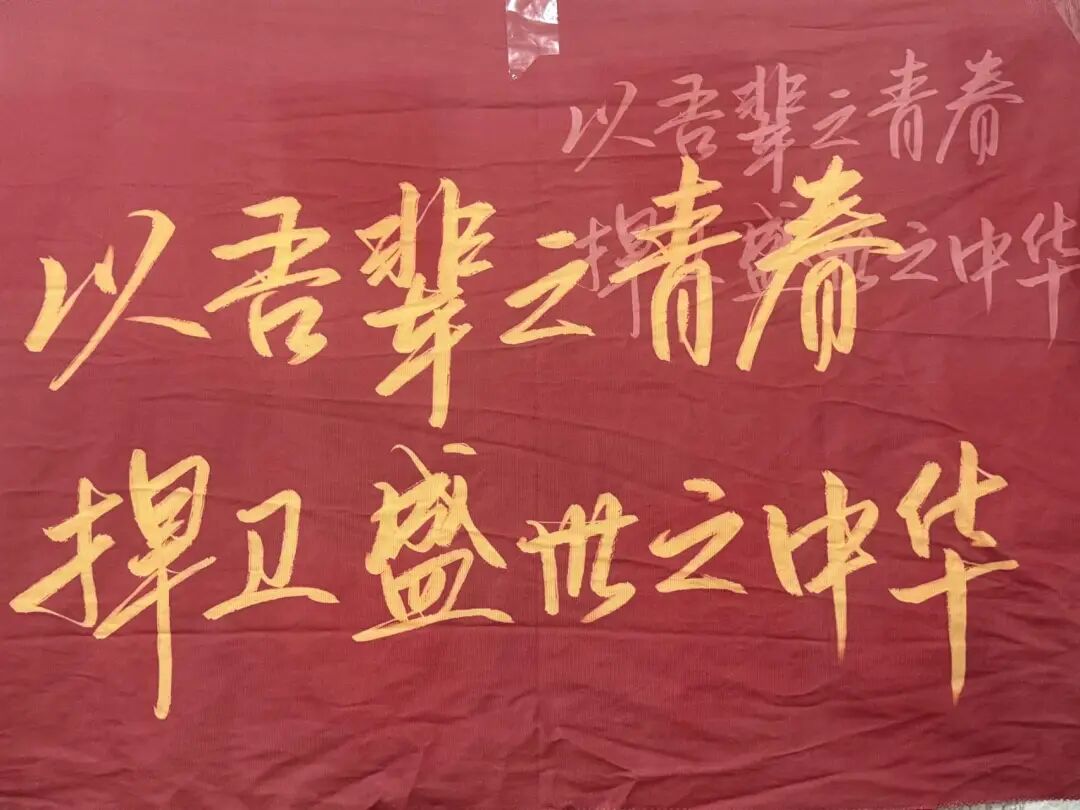 以吾辈之青春
捍卫盛世之中华
以吾辈之青春
捍卫盛世之中华